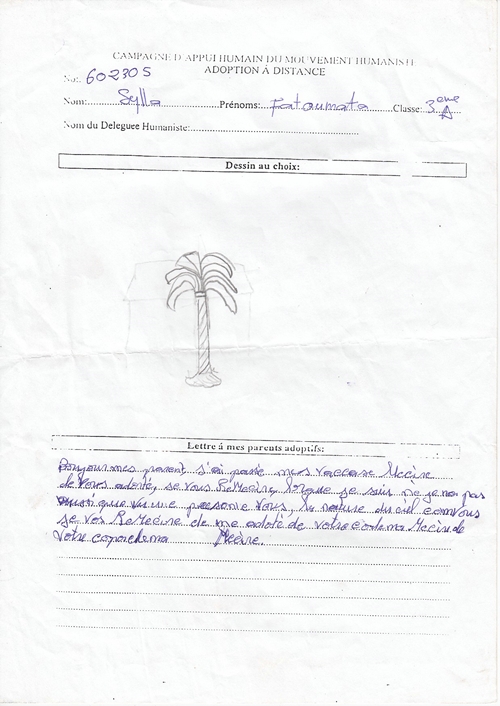 CAMPAGNE D'APPUI HUMAIN DU MOUVEMENT HUMANISTE
ADOPTION Á DISTANCE
No: 602305
Nom: Sylla Prénoms: Fatoumata Classe: 3eme A
Nom du Deleguee Humaniste:
Dessin au choix:
Lettre á mes parents adoptifs:
Bonjour mes parent s'ai passé mes vaccanse Mècire
de Vous adoté, se vous Remecire, lorque je suis né je na pas
une persone Vous, la nature du ciel com vous
sé vos Remecire de me adoté de votre Mècire de
Votre Mècire.